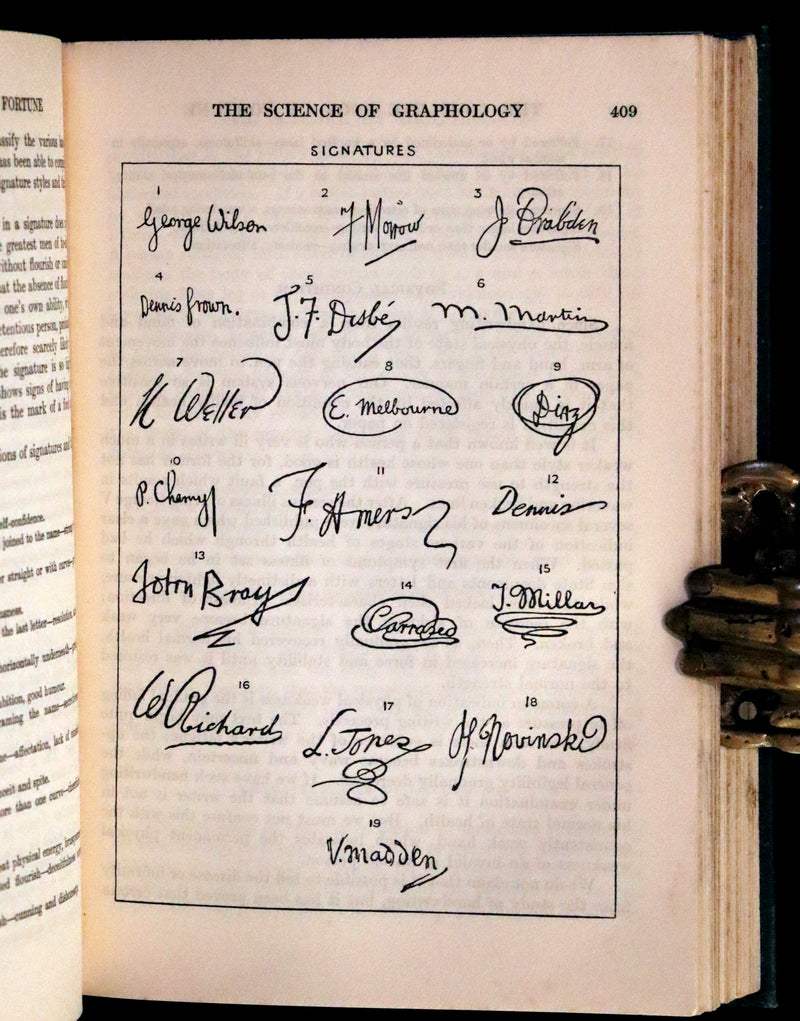 FORTUNE
THE SCIENCE OF GRAPHOLOGY 409
SIGNATURES
1 George Wilson
2 F Morrow
3 J Drabden
4 Dennis frown.
5 J. F. Disbé
6 M. Martin
7 K Weller
8 E. Melbourne
9 Diaz
10 P. Chemy
11 F. Amers
12 Dennis
13 John Bray
14 Carrased
15 J. Millar
16 W Richard
17 L. Jones
18 H. Novinski
19 V. Madden
in a signature
greatest men of
ithout flourish or
at the absence of
one's own ability,
tentious person,
erefore scarcely
he signature is so
shows signs of having
is the mark of a
ions of signatures and
self-confidence.
joined to the name
or straight or with
the last letter
horizontally underneath
bition, good humour.
raming the name
me—affectation, lack of
nceit and spite.
ore than one curve
at physical energy,
ed flourish
sh—cunning and